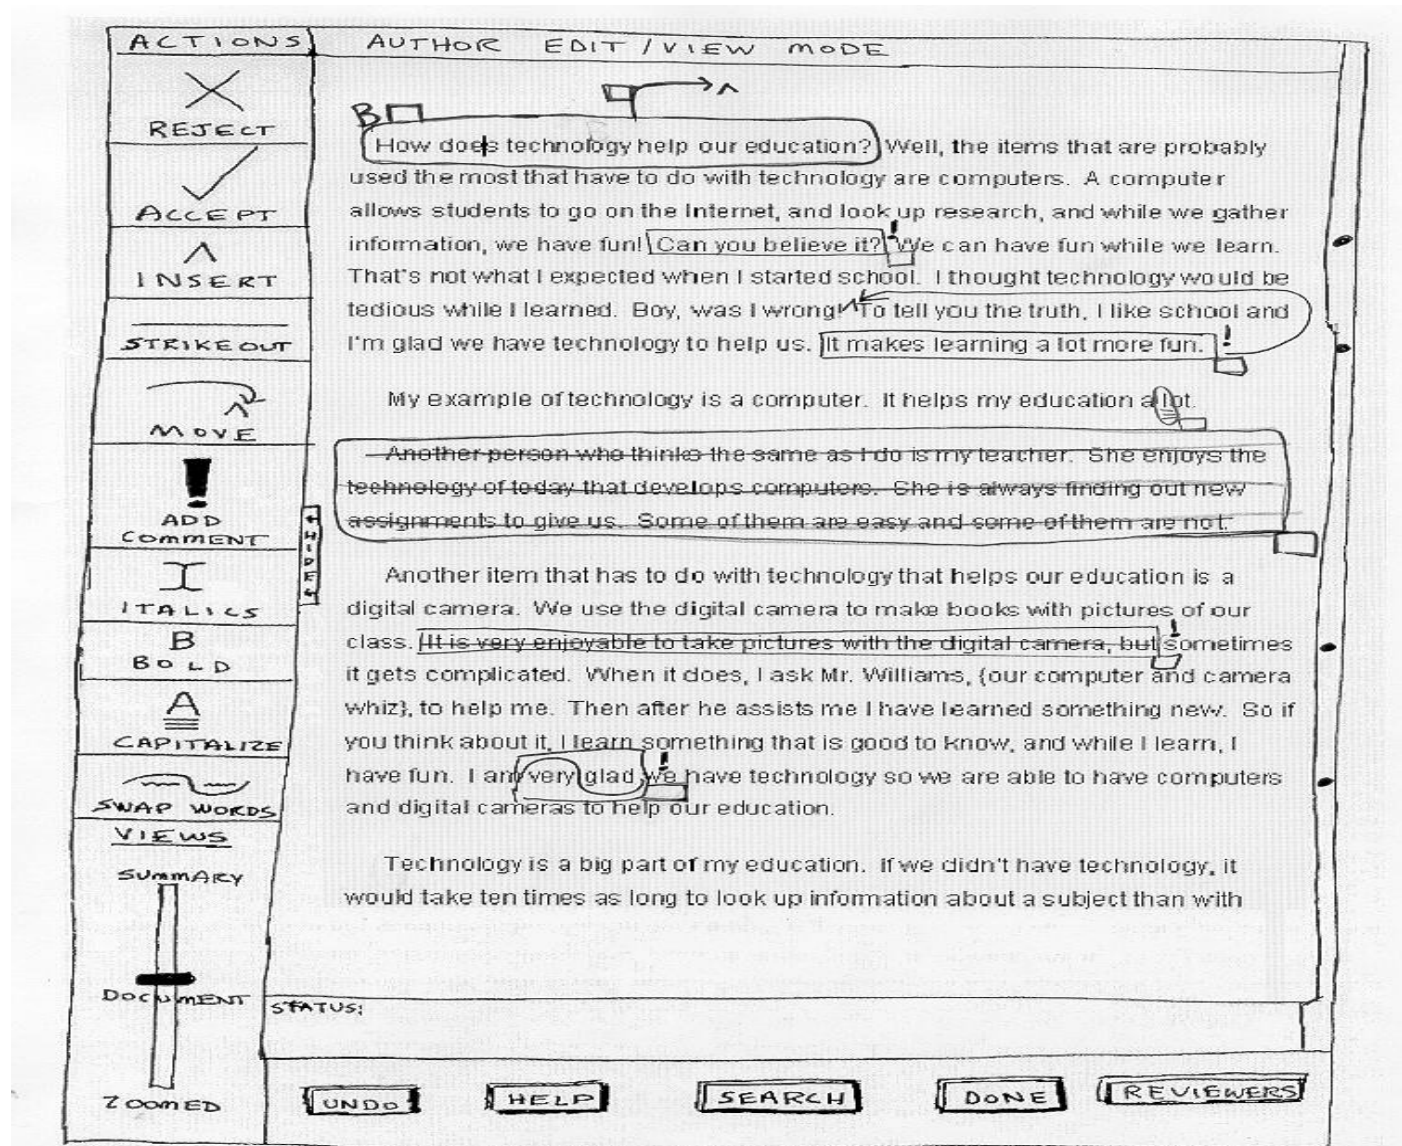 ACTIONS
AUTHOR EDIT / VIEW MODE
REJECT
ACCEPT
INSERT
STRIKEOUT
MOVE
ADD
COMMENT
ITALICS
B
BOLD
A
CAPITALIZE
SWAP WORDS
VIEWS
SUMMARY
DOCUMENT
ZOOMED
HIDE
B
How does technology help our education? Well, the items that are probably
used the most that have to do with technology are computers. A computer
allows students to go on the Internet, and look up research, and while we gather
information, we have fun! Can you believe it? We can have fun while we learn.
That's not what I expected when I started school. I thought technology would be
tedious while I learned. Boy, was I wrong! To tell you the truth, I like school and
I'm glad we have technology to help us. It makes learning a lot more fun.
My example of technology is a computer. It helps my education a lot.
Another person who thinks the same as I do is my teacher. She enjoys the
technology of today that develops computers. She is always finding out new
assignments to give us. Some of them are easy and some of them are not.
Another item that has to do with technology that helps our education is a
digital camera. We use the digital camera to make books with pictures of our
class. It is very enjoyable to take pictures with the digital camera, but sometimes
it gets complicated. When it does, I ask Mr. Williams, {our computer and camera
whiz}, to help me. Then after he assists me I have learned something new. So if
you think about it, I learn something that is good to know, and while I learn, I
have fun. I am very glad we have technology so we are able to have computers
and digital cameras to help our education.
Technology is a big part of my education. If we didn't have technology, it
would take ten times as long to look up information about a subject than with
STATUS:
UNDO
HELP
SEARCH
DONE
REVIEWERS